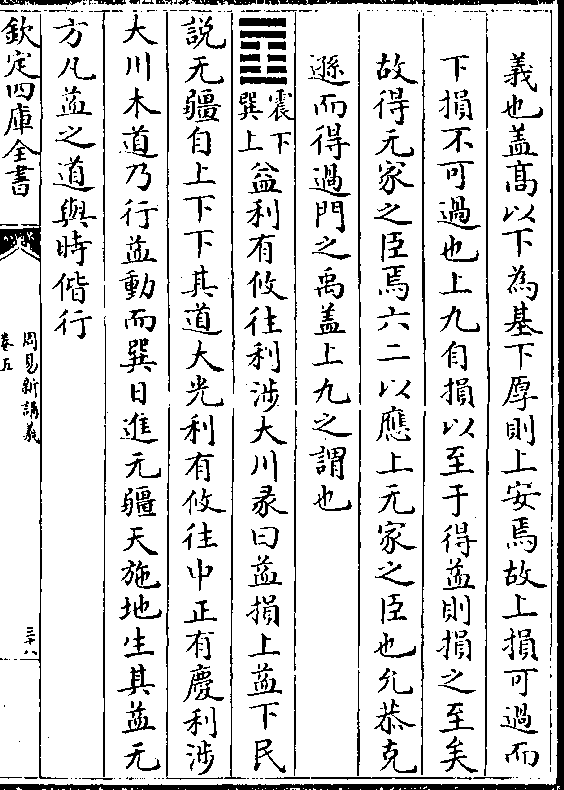 義也盖髙以下為基下厚則上安焉故上損可過而
下損不可過也上九自損以至于得益則損之至矣
故得无家之臣焉六二以應上无家之臣也允恭克
遜而得過門之禹盖上九之謂也
震下
巽上
益利有攸往利涉大川彖曰益損上益下民
説无疆自上下下其道大光利有攸往中正有慶利涉
大川木道乃行益動而巽日進无疆天施地生其益无
方凡益之道與時偕行
欽定四庫全書
周易新講義
卷五
三十八